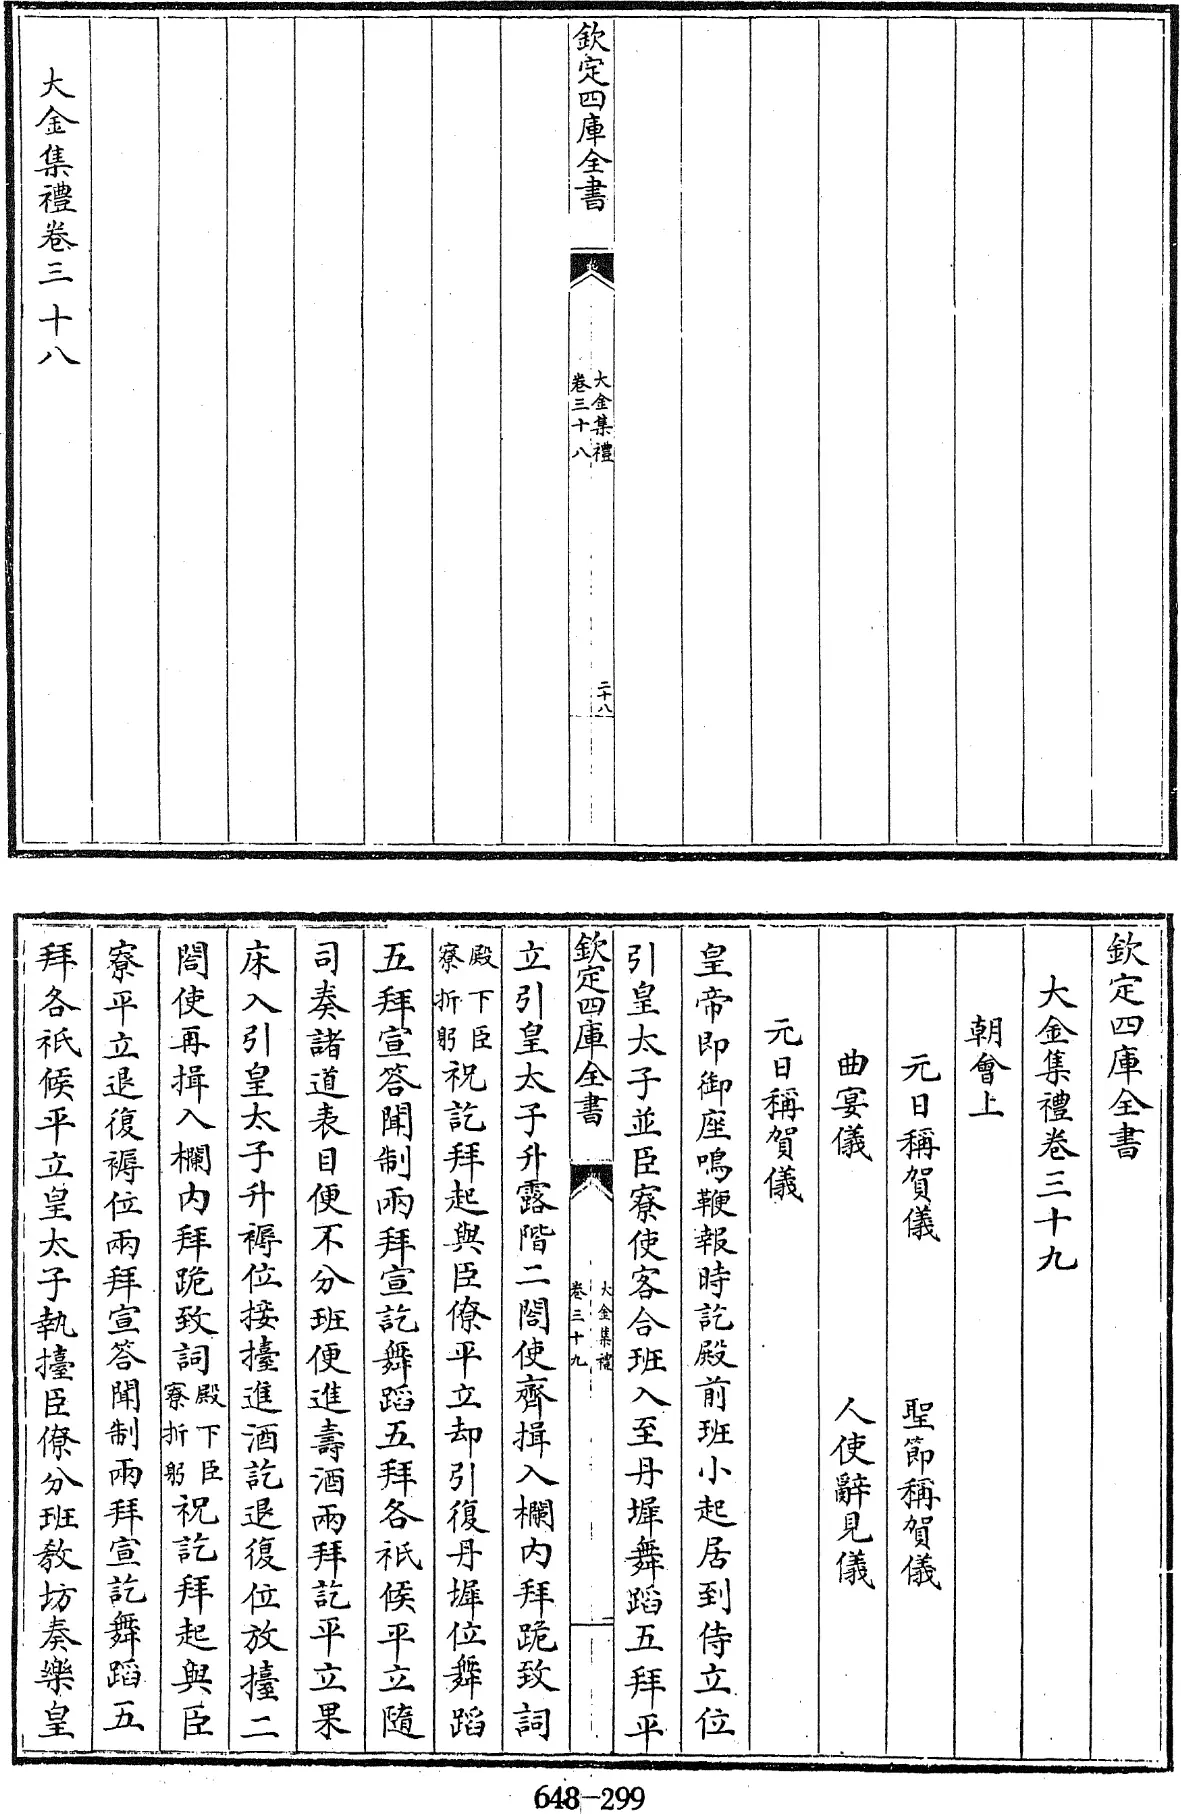 欽定四庫全書
大金集禮
卷三十八
二十八
大金集禮卷三十八
欽定四庫全書
大金集禮卷三十九
朝會上
元日稱賀儀 聖節稱賀儀
曲宴儀 人使辭見儀
元日稱賀儀
皇帝即御座鳴鞭報時訖殿前班小起居到侍立位
引皇太子並臣寮使客合班入至丹墀舞蹈五拜平
欽定四庫全書
大金集禮
卷三十九
一
立引皇太子升露階二閤使齊揖入欄内拜跪致詞
殿下臣寮折躬祝訖拜起與臣僚平立却引復丹墀位舞蹈
五拜宣答聞制兩拜宣訖舞蹈五拜各祇候平立隨
司奏諸道表目便不分班便進壽酒兩拜訖平立果
床入引皇太子升褥位接擡進酒訖退復位放擡二
閤使再揖入欄内拜跪致詞殿下臣寮折躬祝訖拜起與臣
寮平立退復褥位兩拜宣答聞制兩拜宣訖舞蹈五
拜各祇候平立皇太子執擡臣僚分班教坊奏樂皇
648-299